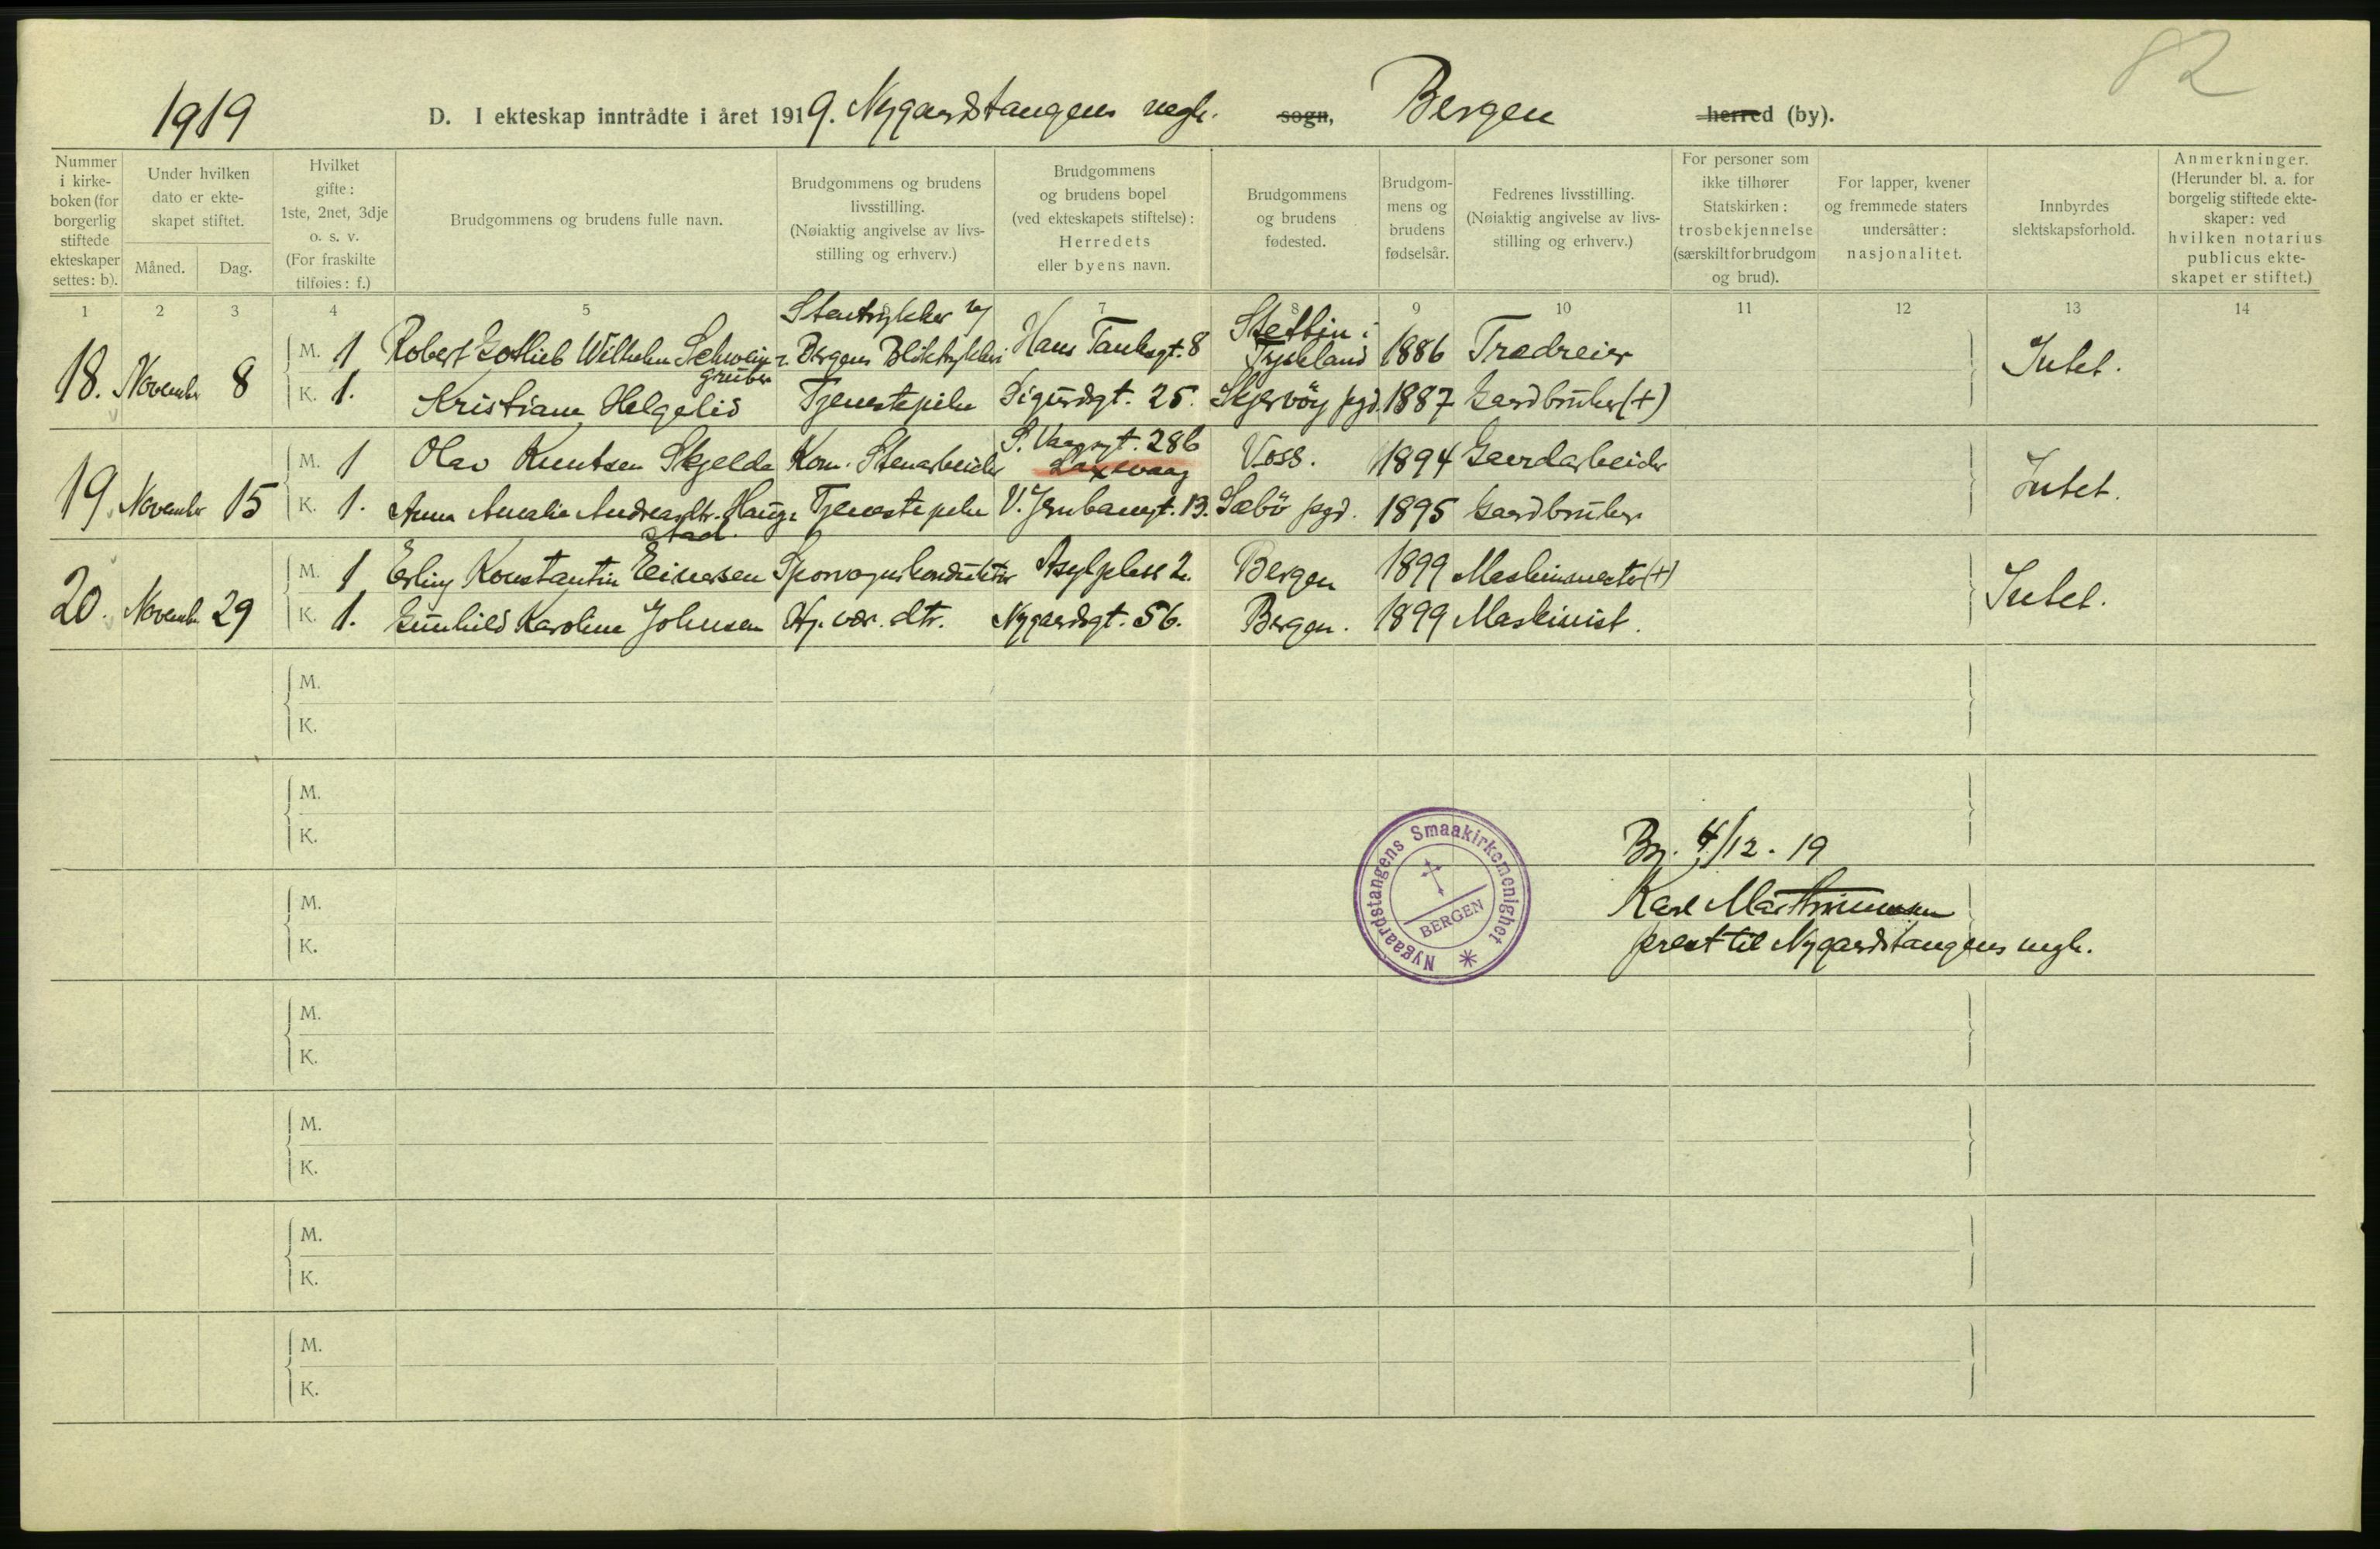 82
1919 D. I ekteskap inntrådte i året 1919. Nygaardstangens mgh. sogn, Bergen herred (by).
Nummer i kirkeboken (for borgerlig stiftede ekteskaper settes: b).
Under hvilken dato er ekteskapet stiftet.
Måned. Dag.
Hvilket gifte: 1ste, 2net, 3dje o. s. v. (For fraskilte tilføies: f.)
Brudgommens og brudens fulle navn.
Brudgommens og brudens livsstilling. (Nøiaktig angivelse av livsstilling og erhverv.)
Brudgommens og brudens bopel (ved ekteskapets stiftelse): Herredets eller byens navn.
Brudgommens og brudens fødested.
Brudgommens og brudens fødselsår.
Fedrenes livsstilling. (Nøiaktig angivelse av livsstilling og erhverv.)
For personer som ikke tilhører Statskirken: trosbekjennelse (særskilt for brudgom og brud).
For lapper, kvener og fremmede staters undersåtter: nasjonalitet.
Innbyrdes slektskapsforhold.
Anmerkninger. (Herunder bl. a. for borgelig stiftede ekteskaper: ved hvilken notarius publicus ekteskapet er stiftet.)
1 2 3 4 5 6 7 8 9 10 11 12 13 14
18. November 8 M. 1 Robert Gotlieb Wilhelm Schweingruber Stentrykker v/ Bergens Bliktrykkeri Hans Tanksgt. 8 Stettin i Tyskland 1886 Trædreier Intet.
K. 1. Kristiane Helgelid Tjenestepike Sigurdsgt. 25. Skjervöy pgd. 1887 Gaardbruker (+)
19. November 15 M. 1 Olav Knutsen Skjelde Kom. Stenarbeider 28b Laxevaag Voss. 1894 Gaardarbeider Intet.
K. 1. Anna Amalie Andreasdtr. Haugestad. Tjenestepike V. Jernbanegt. 13. Sæbö pgd. 1895 Gaardbruker
20. Novemb. 29 M. 1 Erling Konstantin Einersen Sporvognskonduktör Asylplass 2. Bergen 1899 Maskinmester (+) Intet.
K. 1. Gunhild Karoline Johnsen Hj. vær. dtr. Nygaardsgt. 56. Bergen. 1899 Maskinist.
M.
K.
M.
K.
M.
K.
M.
K.
M.
K.
M.
K.
M.
K.
Nygaardstangens Smaakirkemenighet
BERGEN
Bg. 4/12 - 19
Karl Marthinussen
prest til Nygaardstangens mgh.